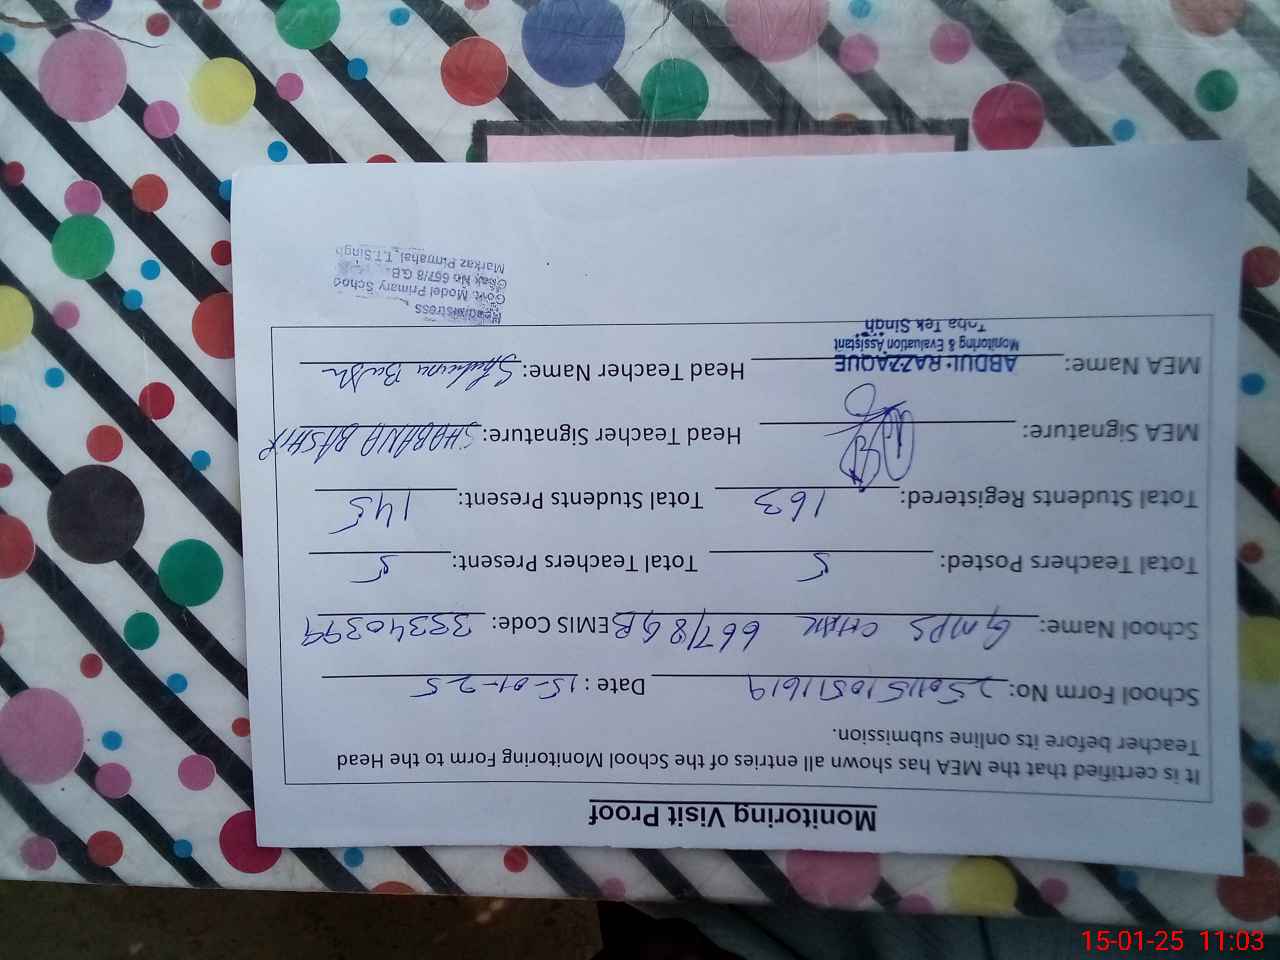 Monitoring Visit Proof
It is certified that the MEA has shown all entries of the School Monitoring Form to the Head
Teacher before its online submission.
School Form No: 25011510511619 Date : 15-01-25
School Name: GMPS CHAK 667/8 GB EMIS Code: 33340399
Total Teachers Posted: 5 Total Teachers Present: 5
Total Students Registered: 163 Total Students Present: 145
MEA Signature: Head Teacher Signature: SHABANA BASHIR
MEA Name: ABDUL RAZZAQUE Head Teacher Name: Shabana Bashir
Monitoring & Evaluation Assistant
Toba Tek Singh
Headmistress
Govt. Model Primary School
Chak No 667/8 G.B.
Markaz Pirmahal, T.T.Singh
15-01-25 11:03